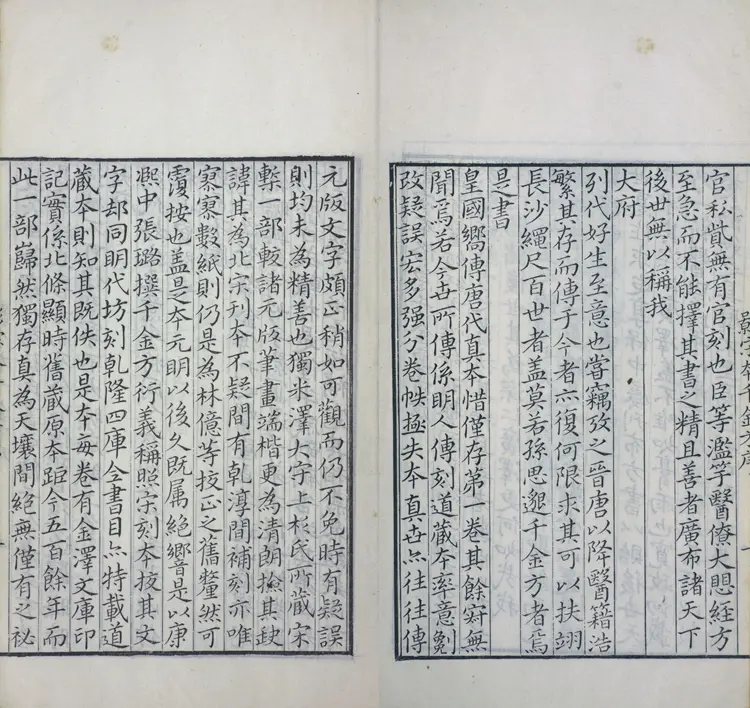 官私貲無有官刻也臣等濫竽醫僚大愳經方
至急而不能擇其書之精且善者廣布諸天下
後世無以稱我
大府
列代好生至意也嘗竊攷之晉唐以降醫籍浩
繁其存而傳于今者亦復何限求其可以扶翊
長沙繩尺百世者蓋莫若孫思邈千金方者焉
是書
皇國嚮傳唐代真本惜僅存第一卷其餘寂無
聞焉若今世所傳係明人傳刻道藏本率意劖
改疑誤宏多强分卷帙極失本真世亦往往傳
元版文字頗正稍如可觀而仍不免時有疑誤
則均未為精善也獨米澤大守上杉氏所藏宋
槧一部較諸元版筆畫端楷更為清朗撿其缺
諱其為北宋刊本不疑間有乾淳間補刻亦唯
寥寥數紙則仍是為林億等挍正之舊釐然可
覆按也蓋是本元明以後久既属絕響是以康
凞中張璐撰千金方衍義稱照宋刻本挍其文
字却同明代坊刻乾隆四庫全書目亦特載道
藏本則知其既佚也是本每卷有金澤文庫印
記實係北條顯時舊藏原本距今五百餘年而
此一部巋然獨存真為天壤間絕無僅有之秘